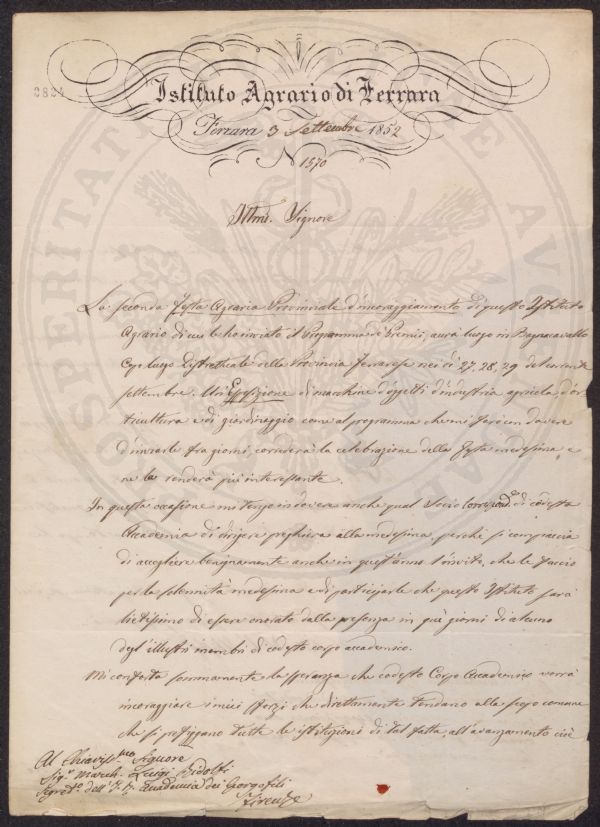 2824
Istituto Agrario di Ferrara
Ferrara 3 Settembre 1852
N 1570
Illmo. Signore
La seconda Festa Agraria Provinciale d'incoraggiamento di questo Istituto
Agrario di cui le ho inviato il Programma di Premii, avrà luogo in Bagnacavallo
Capo luogo Distrettuale della Provincia Ferrarese nei dì 27, 28, 29 del corrente
settembre. Un'Esposizione di macchine d'oggetti d'industria agricola, d'or
ticultura e di giardinaggio come al programma che mi farò un dovere
d'inviarle fra giorni, correderà la celebrazione della Festa medesima, e
ne la renderà più interessante.
In questa occasione mi tengo in dovere anche qual Socio Corrispond.e di codesta
Accademia di dirigere preghiera alla medesima, perchè si compiaccia
di accogliere benignamente anche in quest'anno l'invito, che le faccio
per la solennità medesima e di participarle che questo Istituto sarà
lietissimo di essere onorato dalla presenza in più giorni di alcuno
degl'illustri membri di codesto corpo accademico.
Mi conforta sommamente la speranza che codesto Corpo Accademico vorrà
incoraggiare i miei sforzi che direttamente tendono allo scopo comune
che si prefiggano tutte le istituzioni di tal fatta, all'avanzamento cioè
Al Chiariss.mo Signore
Sig.r March. Luigi Ridolfi
Segret.o dell'I. R. Accademia dei Georgofili
Firenze
PROSPERITATI